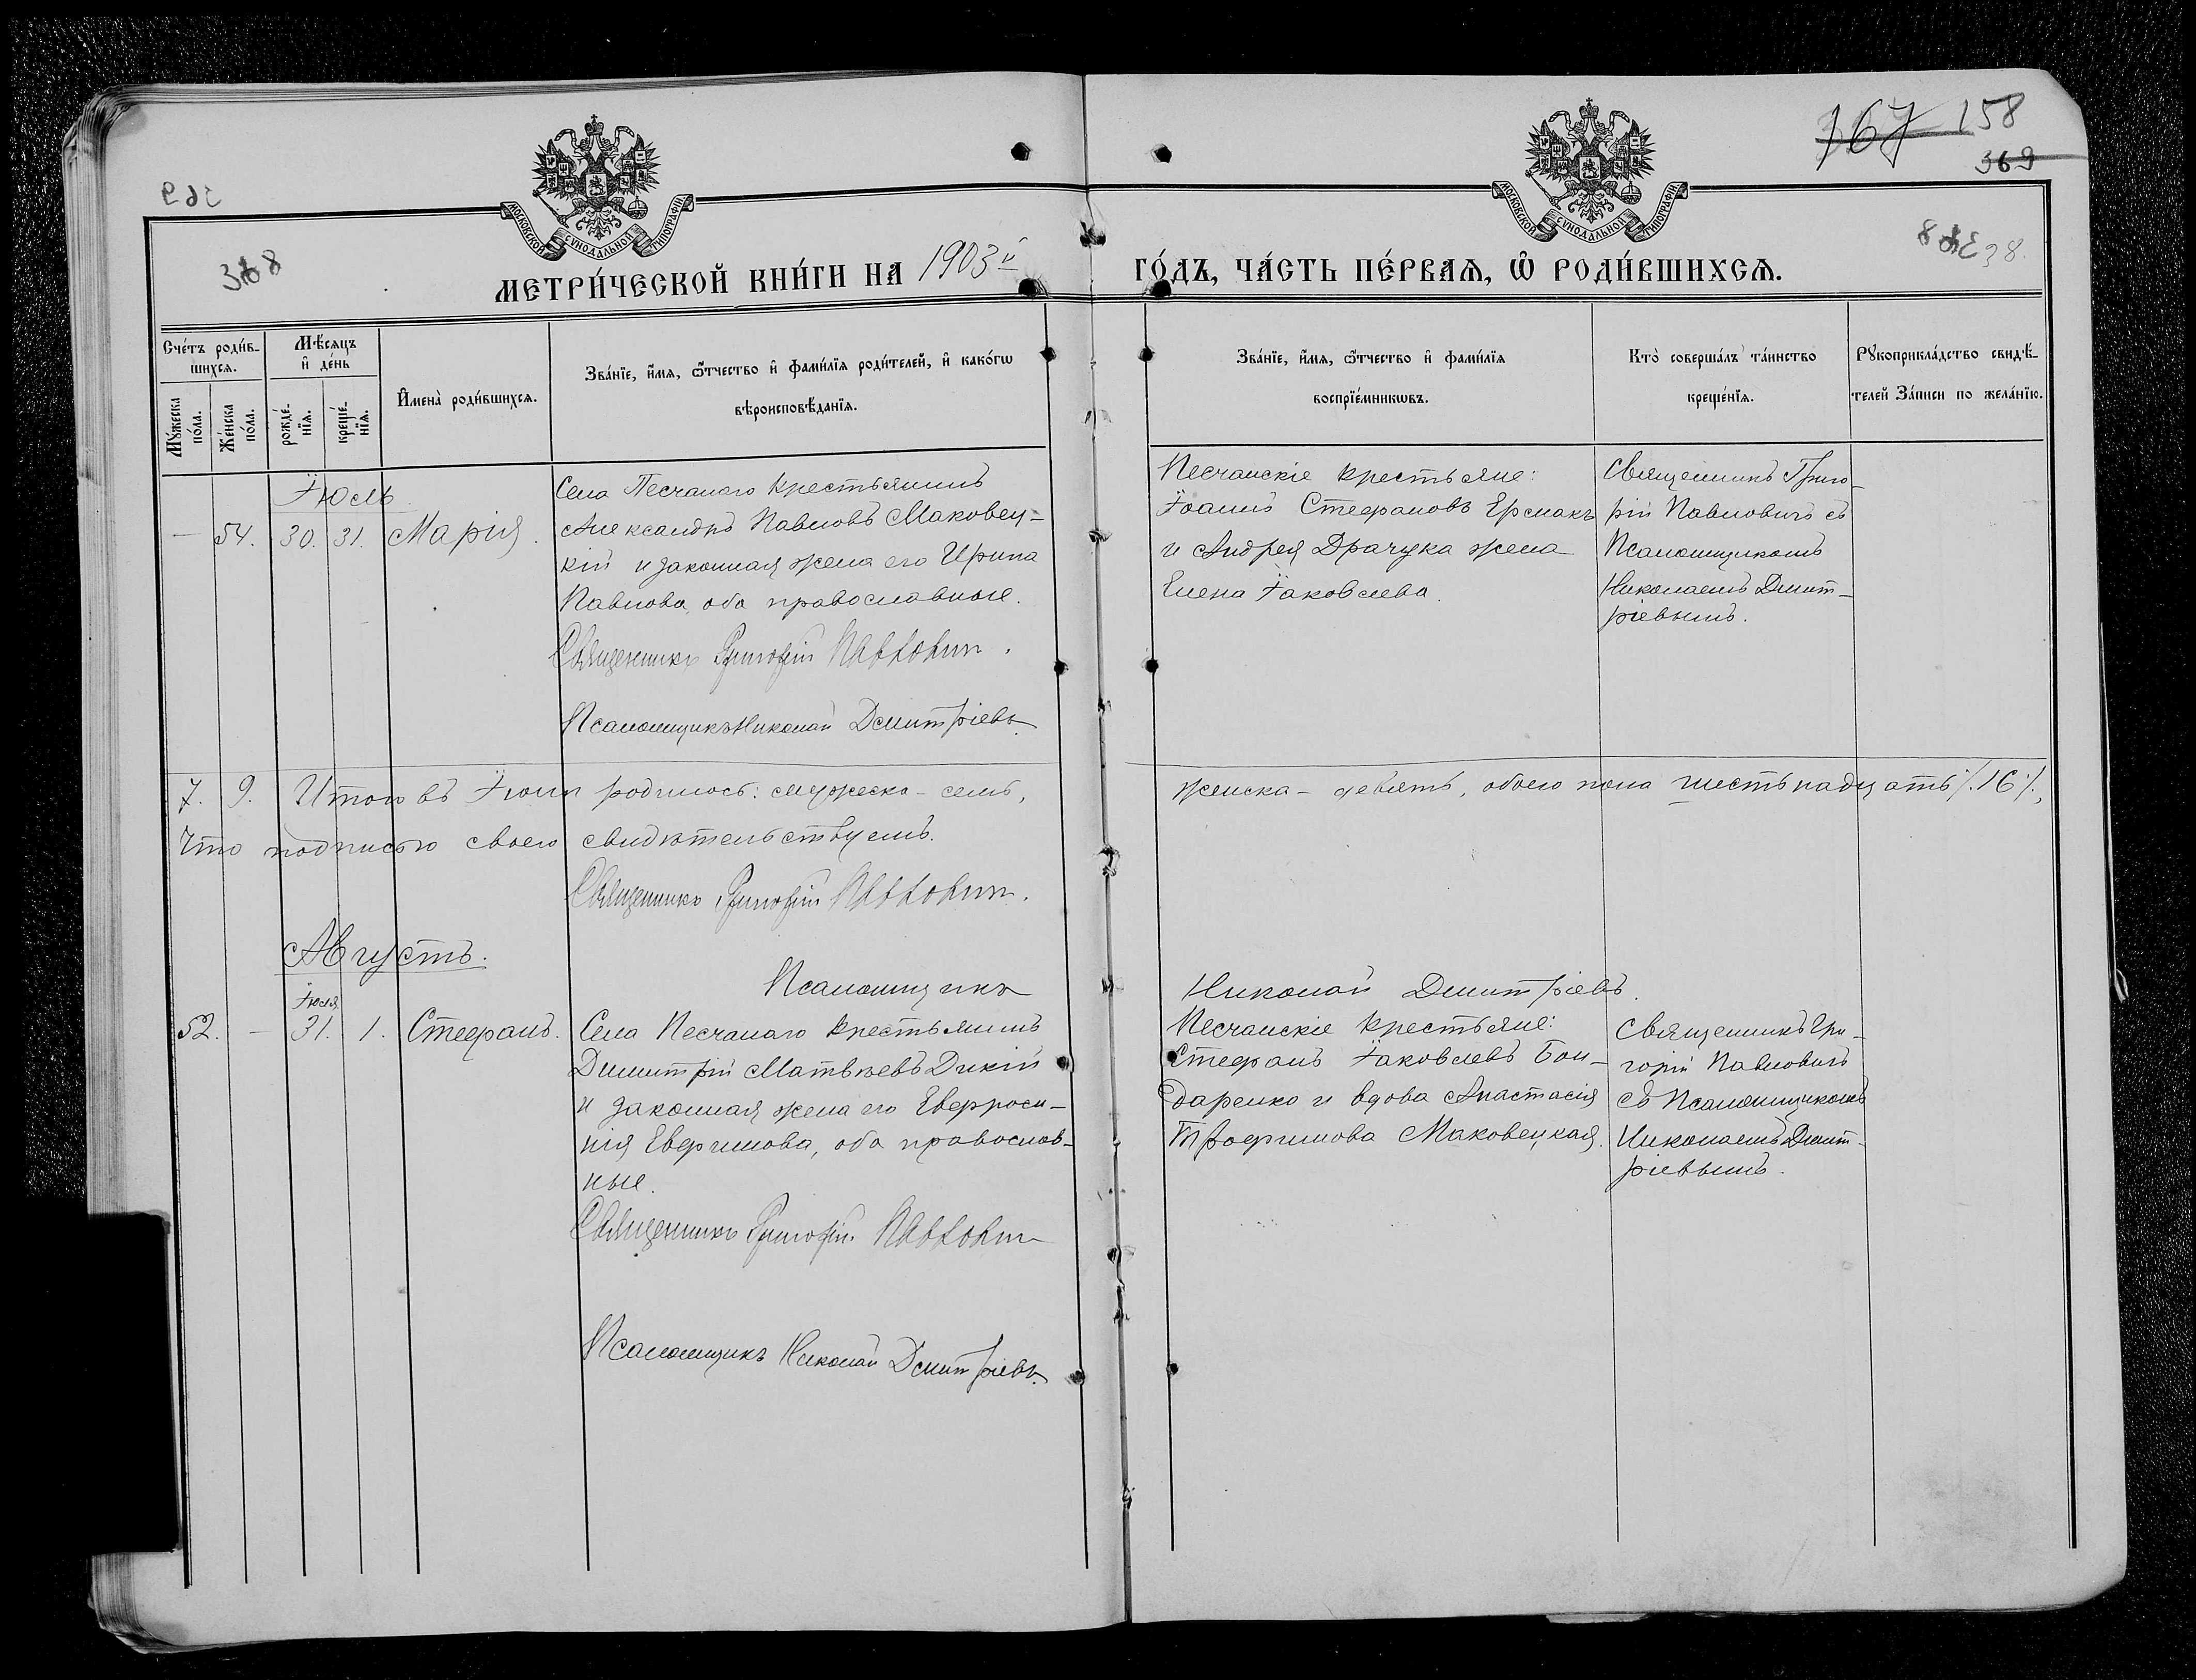 167 158
369
368
38.
МОСКОВСКОЙ СѴНОДАЛЬНОЙ ТИПОГРАФІИ
МОСКОВСКОЙ СѴНОДАЛЬНОЙ ТИПОГРАФІИ
МЕТРИ́ЧЕСКОЙ КНИ́ГИ НА 1903й ГО́ДЪ, ЧА́СТЬ ПЕ́РВАѦ, Ѡ҆ РОДИ́ВШИХСѦ.
Сче́тъ роди́в-
шихсѧ.
Мꙋ́жеска по́ла.
Же́нска по́ла.
Мѣ́сѧцъ
и҆ де́нь
рожде́-
нїѧ.
креще́-
нїѧ.
И҆мена̀ роди́вшихсѧ.
Зва́нїе, и҆́мѧ, ѻ҆́тчество и҆ фами́лїѧ роди́телей, и҆ како́гѡ
вѣроисповѣ́данїѧ.
Зва́нїе, и҆́мѧ, ѻ҆́тчество и҆ фами́лїѧ
воспрїе́мникѡвъ.
Кто̀ соверша́лъ та́инство
креще́нїѧ.
Рꙋкоприкла́дство свидѣ́-
телей За́писи по жела́нїю.
Іюль
— 54. 30. 31. Марія.
Села Песчанаго крестьянинъ
Александръ Павловъ Маковец-
кій и законная жена его Ирина
Павлова, оба православные.
Священникъ Григорій Павловичъ.
Псаломщикъ Николай Дмитріевъ.
Песчанскіе крестьяне:
Іоаннъ Стефановъ Ермакъ
и Андрея Драчука жена
Елена Іаковлева.
Священникъ Григо-
рій Павловичъ съ
Псаломщикомъ
Николаемъ Дмит-
ріевымъ.
7. 9. Итого въ Іюли родилось: мужеска - семь, женска - девять, обоего пола шестьнадцать ./.16./.,
Что подписью своею свидѣтельствуемъ.
Священникъ Григорій Павловичъ.
Псаломщикъ Николай Дмитріевъ.
Августъ.
Іюля
52. — 31. 1. Стефанъ.
Села Песчанаго крестьянинъ
Димитрій Матвѣевъ Дикій
и законная жена его Евфроси-
нія Евфимова, оба православ-
ные.
Священникъ Григорій Павловичъ
Псаломщикъ Николай Дмитріевъ.
Песчанскіе крестьяне:
Стефанъ Іаковлевъ Бон-
даренко и вдова Анастасія
Трофимова Маковецкая.
Священникъ Гри-
горій Павловичъ
съ Псаломщикомъ
Николаемъ Дмит-
ріевымъ.